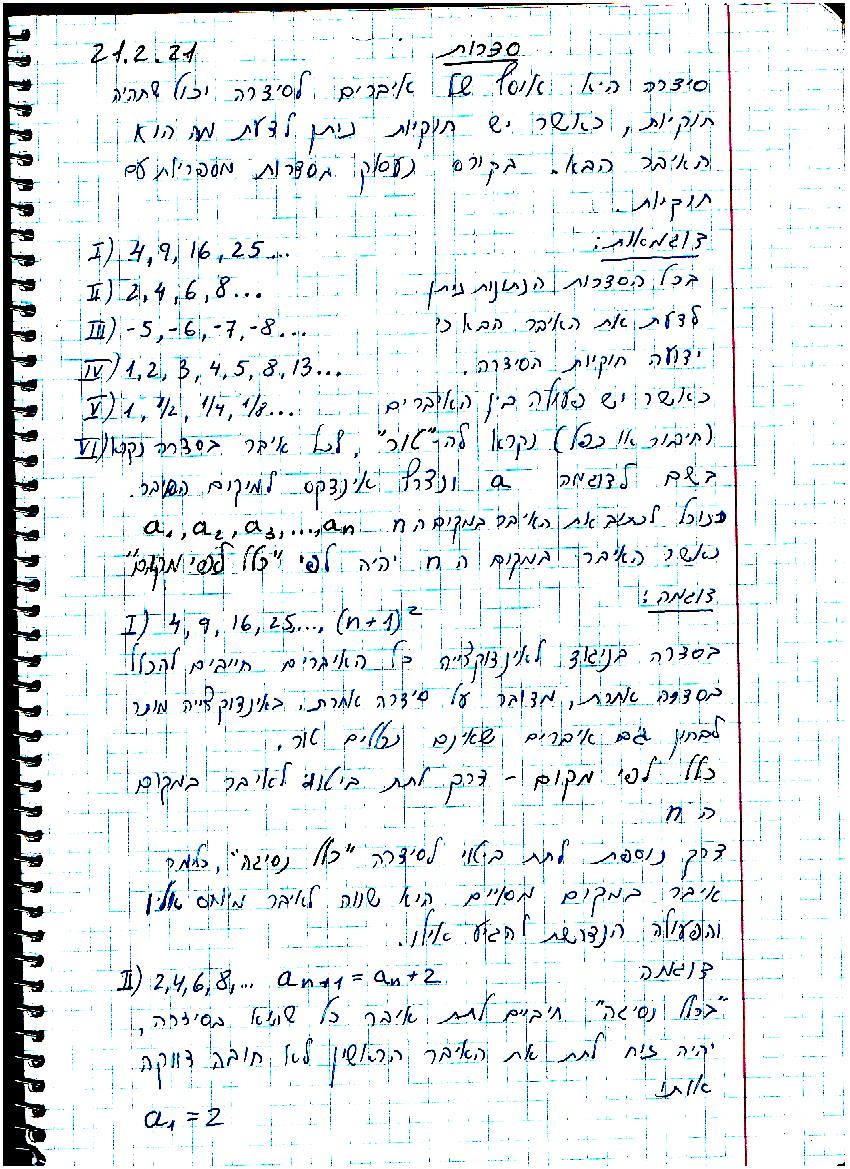 סדרות 21.2.21
סידרה היא אוסף של איברים לסידרה יכול שתהיה
חוקיות, כאשר יש חוקיות ניתן לדעת מה הוא
האיבר הבא. בקורס נעסוק בסדרות מספריות עם
חוקיות.
דוגמאות:
I) 4, 9, 16, 25...
בכל הסדרות הנתונות ניתן II) 2, 4, 6, 8...
לדעת את האיבר הבא כי III) -5, -6, -7, -8...
ידועה חוקיות הסידרה. IV) 1, 2, 3, 4, 5, 8, 13...
כאשר יש פעולה בין האיברים V) 1, 1/2, 1/4, 1/8...
(חיבור או כפל) נקרא לה "טור", לכל איבר בסדרה נקרא VI)
בשם לדוגמה a ונצרף אינדקס למיקום האיבר.
נוכל לכתוב את האיבר במקום ה n a1, a2, a3, ..., an
כאשר האיבר במקום ה n יהיה לפי "כלל לפי מקום"
דוגמה:
I) 4, 9, 16, 25..., (n+1)²
בסדרה בניגוד לאינדוקצייה כל האיברים חייבים להכלל
בסדרה אחרת, מדובר על סידרה אחרת. באינדוקצייה מותר
לבחון גם איברים שאינם טור.
כלל לפי מקום - דרך לתת ביטוי לאיבר במקום
ה n
דרך נוספת לתת ביטוי לסידרה "כלל נסיגה", כלומר
איבר במקום מסויים הוא שווה לאיבר אליו
והפעולה הנדרשת להגיע אילו.
דוגמה II) 2, 4, 6, 8,... an+1 = an + 2
"בכלל נסיגה" חיבים לתת איבר כל שהוא בסידרה,
יהיה נוח לתת את האיבר הראשון לא חובה דווקה
אותו
a1 = 2